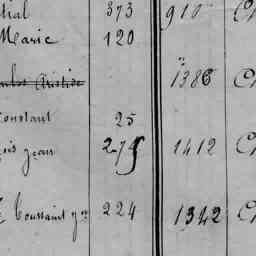 tial 373 910 C
Marie 120
Aristide 1386 C
Constant 25
çois jean 275 1412 C
Toussaint 224 1342 C